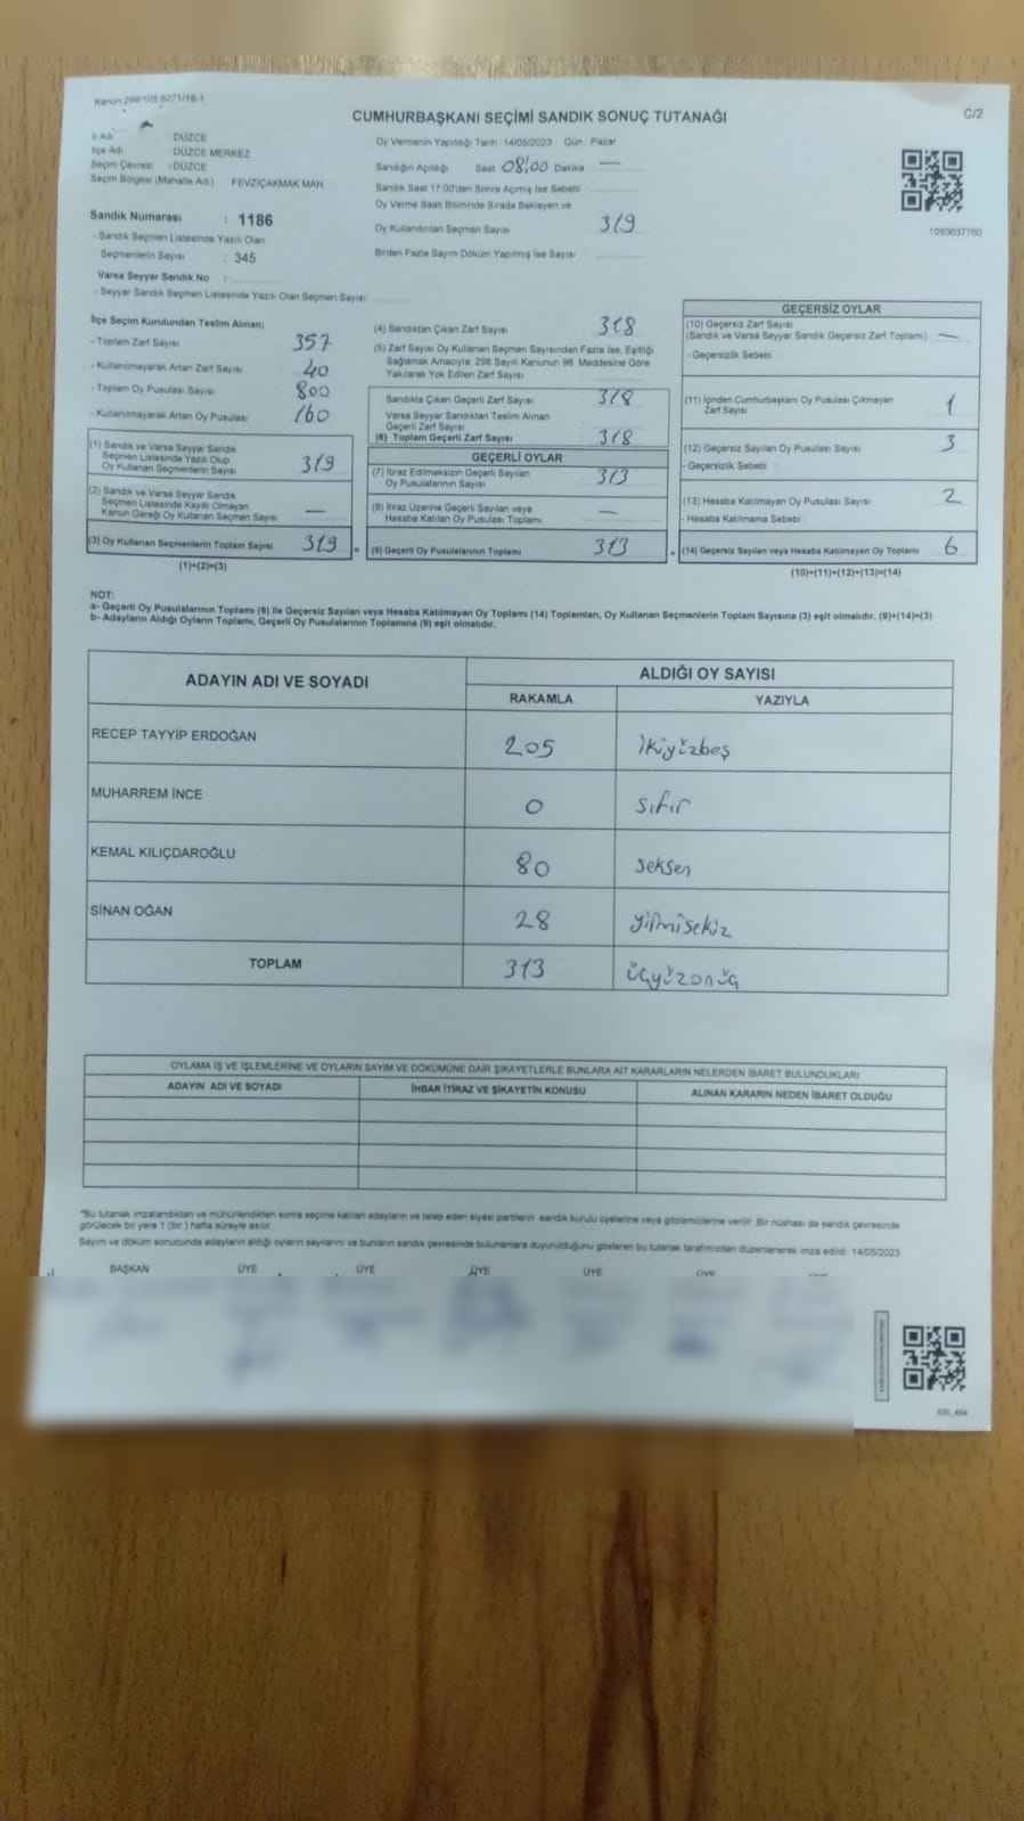 CUMHURBAŞKANI SEÇİMİ SANDIK SONUÇ TUTANAĞI
C/2
DÜZCE
İlçe Adı DÜZCE MERKEZ
Seçim Çevresi : DÜZCE
Seçim Bölgesi (Mahalle Adı) FEVZİÇAKMAK MAH.
Oy Vermenin Yapıldığı Tarih : 14/05/2023 Gün : Pazar
Sandığın Açıldığı Saat 08:00 Dakika —
Sandık Saat 17:00'den Sonra Açılmış İse Sebebi
Oy Verme Saati Bitiminde Sırada Bekleyen ve
Oy Kullandırılan Seçmen Sayısı 319
Birden Fazla Sayım Döküm Yapılmış İse Sayısı
Sandık Numarası : 1186
- Sandık Seçmen Listesinde Yazılı Olan
Seçmenlerin Sayısı : 345
Varsa Seyyar Sandık No :
- Seyyar Sandık Seçmen Listesinde Yazılı Olan Seçmen Sayısı
İlçe Seçim Kurulundan Teslim Alınan;
- Toplam Zarf Sayısı 357
- Kullanılmayarak Artan Zarf Sayısı 40
- Toplam Oy Pusulası Sayısı 800
- Kullanılmayarak Artan Oy Pusulası 160
(1) Sandık ve Varsa Seyyar Sandık
Seçmen Listesinde Yazılı Olup
Oy Kullanan Seçmenlerin Sayısı 319
(2) Sandık ve Varsa Seyyar Sandık
Seçmen Listesinde Kayıtlı Olmayan
Kanun Gereği Oy Kullanan Seçmen Sayısı —
(3) Oy Kullanan Seçmenlerin Toplam Sayısı 319
(1)+(2)=(3)
(4) Sandıktan Çıkan Zarf Sayısı 318
(5) Zarf Sayısı Oy Kullanan Seçmen Sayısından Fazla İse, Eşitliği
Sağlamak Amacıyla 298 Sayılı Kanunun 98. Maddesine Göre
Yakılarak Yok Edilen Zarf Sayısı
Sandıkta Çıkan Geçerli Zarf Sayısı 318
Varsa Seyyar Sandıktan Teslim Alınan
Geçerli Zarf Sayısı
(6) Toplam Geçerli Zarf Sayısı 318
GEÇERLİ OYLAR
(7) İtiraz Edilmeksizin Geçerli Sayılan
Oy Pusulalarının Sayısı 313
(8) İtiraz Üzerine Geçerli Sayılan veya
Hesaba Katılan Oy Pusulası Toplamı —
(9) Geçerli Oy Pusulalarının Toplamı 313
GEÇERSİZ OYLAR
(10) Geçersiz Zarf Sayısı
(Sandık ve Varsa Seyyar Sandık Geçersiz Zarf Toplamı) —
- Geçersizlik Sebebi
(11) İçinden Cumhurbaşkanı Oy Pusulası Çıkmayan
Zarf Sayısı 1
(12) Geçersiz Sayılan Oy Pusulası Sayısı 3
- Geçersizlik Sebebi
(13) Hesaba Katılmayan Oy Pusulası Sayısı 2
- Hesaba Katılmama Sebebi
(14) Geçersiz Sayılan veya Hesaba Katılmayan Oy Toplamı 6
(10)+(11)+(12)+(13)=(14)
NOT:
a- Geçerli Oy Pusulalarının Toplamı (9) ile Geçersiz Sayılan veya Hesaba Katılmayan Oy Toplamı (14) Toplamları, Oy Kullanan Seçmenlerin Toplam Sayısına (3) eşit olmalıdır. (9)+(14)=(3)
b- Adayların Aldığı Oyların Toplamı, Geçerli Oy Pusulalarının Toplamına (9) eşit olmalıdır.
ADAYIN ADI VE SOYADI
ALDIĞI OY SAYISI
RAKAMLA YAZIYLA
RECEP TAYYİP ERDOĞAN 205 ikiyüzbeş
MUHARREM İNCE 0 sıfır
KEMAL KILIÇDAROĞLU 80 seksen
SİNAN OĞAN 28 yirmisekiz
TOPLAM 313 üçyüzonüç
OYLAMA İŞ VE İŞLEMLERİNE VE OYLARIN SAYIM VE DÖKÜMÜNE DAİR ŞİKAYETLERLE BUNLARA AİT KARARLARIN NELERDEN İBARET BULUNDUKLARI
ADAYIN ADI VE SOYADI İHBAR İTİRAZ VE ŞİKAYETİN KONUSU ALINAN KARARIN NEDEN İBARET OLDUĞU
"Bu tutanak imzalandıktan ve mühürlendikten sonra seçime katılan adayların ve talep eden siyasi partilerin sandık kurulu üyelerine veya gözlemcilerine verilir. Bir nüshası da sandık çevresinde
görülecek bir yere 1 (bir) hafta süreyle asılır.
Sayım ve döküm sonucunda adayların aldığı oyların sayılarını ve bunların sandık çevresinde bulunanlara duyurulduğunu gösteren bu tutanak tarafımızdan düzenlenerek imza edildi. 14/05/2023
BAŞKAN ÜYE ÜYE ÜYE ÜYE ÜYE